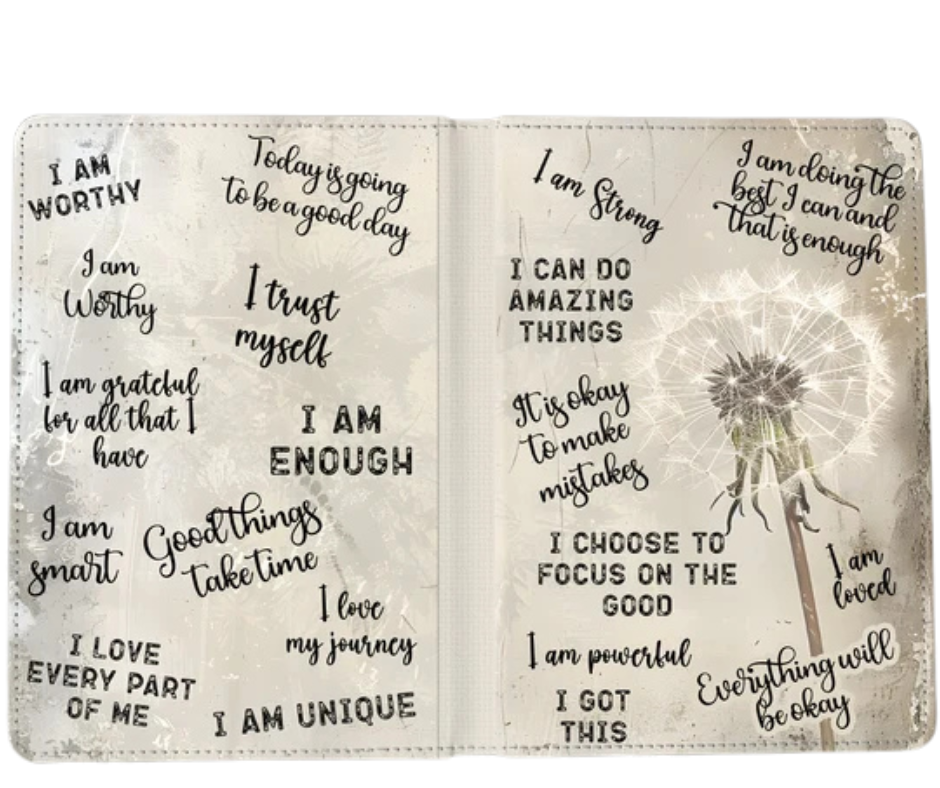 I AM
WORTHY
Today is going
to be a good day
I am
Worthy
I trust
myself
I am grateful
for all that I
have
I AM
ENOUGH
I am
smart
Good things
take time
I love
my journey
I LOVE
EVERY PART
OF ME
I AM UNIQUE
I am Strong
I am doing the
best I can and
that is enough
I CAN DO
AMAZING
THINGS
It is okay
to make
mistakes
I CHOOSE TO
FOCUS ON THE
GOOD
I am
loved
I am powerful
Everything will
be okay
I GOT
THIS